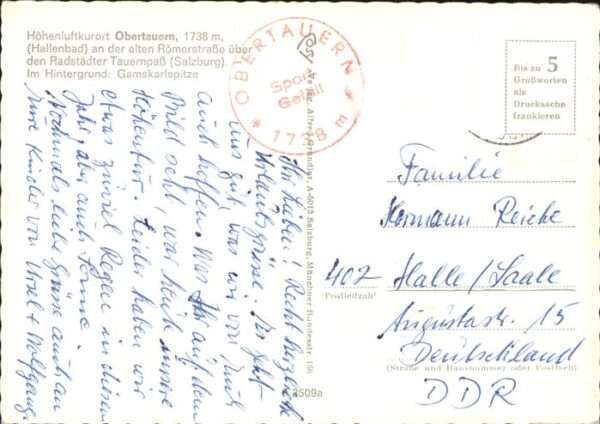 Höhenluftkurort Obertauern, 1738 m,
(Hallenbad) an der alten Römerstraße über
den Radstädter Tauernpaß (Salzburg).
Im Hintergrund: Gamskarlspitze
OBERTAUERN
Sport
* 1738 m
Bis zu 5
Grußworten
als
Drucksache
frankieren
Ihr Lieben! Recht herzliche
Urlaubsgrüsse. Es geht
uns gut, was wir von Euch
auch hoffen. Was Ihr auf dem
Bild seht, war heute unsere
Leider haben wir
etwas zuviel Regen in diesem
Jahr, aber auch Sonne.
Nochmals liebe Grüsse auch an
Eure Kinder von Ursel + Wolfgang
A-5013 Salzburg, Münchner Bundesstr. 156
2509a
Familie
Hermann Reiche
402 Halle/Saale
(Postleitzahl)
Augustastr. 15
Deutschland
(Straße und Hausnummer oder Postfach)
DDR